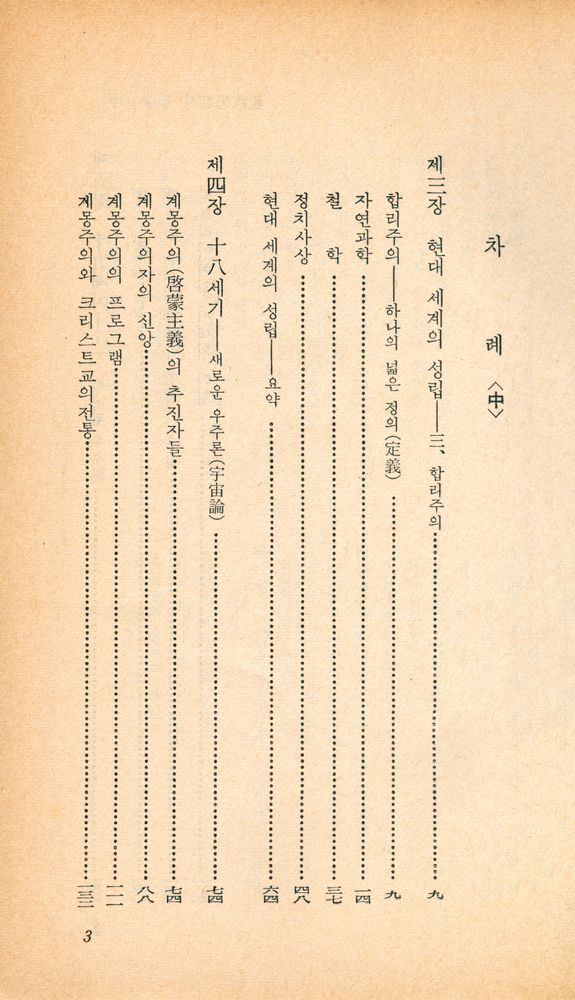 차 례 〈中〉
제三장 현대 세계의 성립——三、합리주의………九
합리주의——하나의 넓은 정의(定義)………九
자연과학………一四
철 학………三七
정치사상………四八
현대 세계의 성립——요약………六四
제四장 十八세기——새로운 우주론(宇宙論)………七四
계몽주의(啓蒙主義)의 추진자들………七四
계몽주의자의 신앙………八八
계몽주의의 프로그램………一一一
계몽주의와 크리스트교의전통………一三三
3